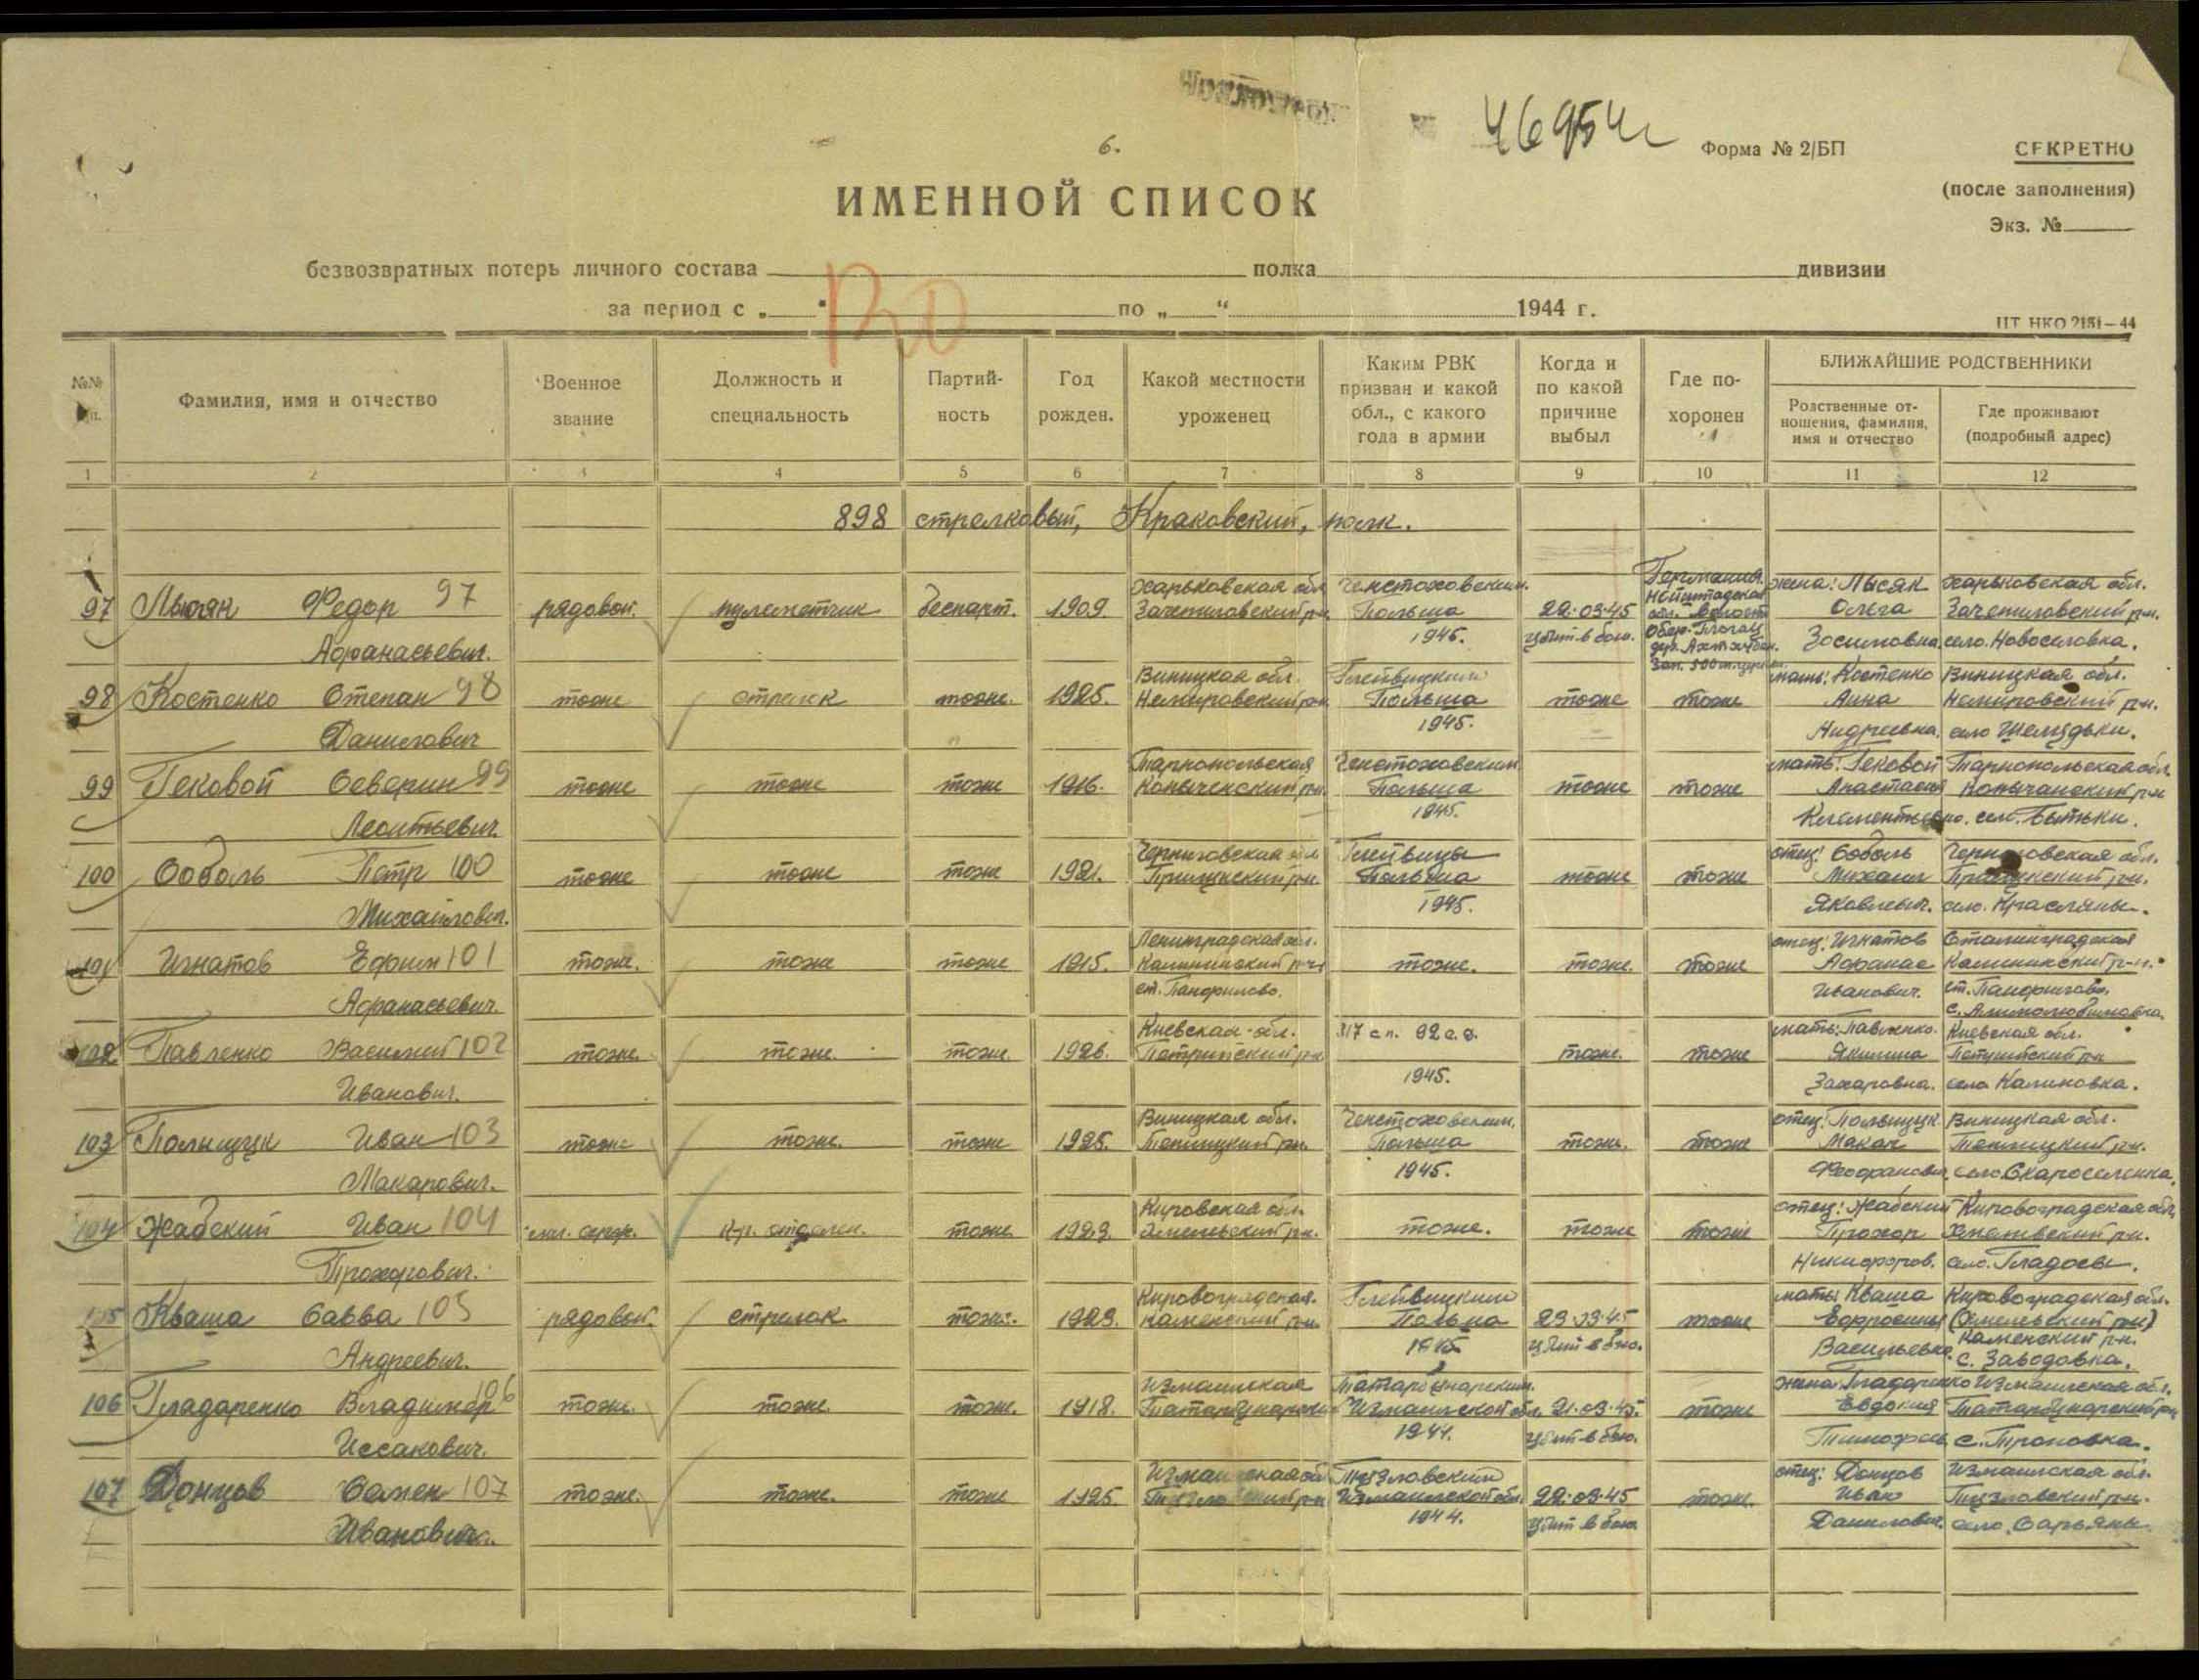 6.
46954
Форма № 2/БП
СЕКРЕТНО
(после заполнения)
Экз. №
ИМЕННОЙ СПИСОК
безвозвратных потерь личного состава полка дивизии
за период с „ “ по „ “ 1944 г.
ЦТ НКО 2151—44
№№ п.
Фамилия, имя и отчество
Военное звание
Должность и специальность
Партий-
ность
Год рожден.
Какой местности уроженец
Каким РВК
призван и какой
обл., с какого
года в армии
Когда и
по какой
причине
выбыл
Где по-
хоронен
БЛИЖАЙШИЕ РОДСТВЕННИКИ
Родственные от-
ношения, фамилия,
имя и отчество
Где проживают
(подробный адрес)
1 2 3 4 5 6 7 8 9 10 11 12
898 стрелковый, Краковский, полк.
Харьковская обл. Ченстоховским. Германия. жена: Лысяк Харьковская обл.
97 Лысяк Федор 97 рядовой. пулеметчик беспарт. 1909 Зачепиловский р-н. Польша 22.03.45 Ольга Зачепиловский р-н.
Афанасьевич. 1945. убит в бою. Зосимовна. село. Новоселовка.
Виницкая обл. Глейвицким мать: Костенко Виницкая обл.
98 Костенко Степан 98 тоже стрелок тоже. 1925. Немировский р-н Польша тоже тоже Анна Немировский р-н.
Данилович 1945. Андреевна. село
Тарнопольская Ченстоховским мать: Гековой Тарнопольская обл.
99 Гековой Северин 99 тоже тоже тоже 1916. р-н. Польша тоже тоже Анастасия р-н
Леонтьевич. 1945. село.
Черниговская обл Глейвицы отец: Соболь Черниговская обл.
100 Соболь Петр 100 тоже тоже тоже 1921. р-н. Польша тоже тоже Михаил р-н.
Михайлович. 1945. Яковлевич. село.
Ленинградская обл. отец: Игнатов Сталинградская
101 Игнатов Ефим 101 тоже. тоже тоже 1915. Калининский р-н тоже. тоже. тоже Афанас Калининский р-н.
Афанасьевич. ст. Панфилово. Иванович. ст. Панфилово,
Киевская обл. 317 с.п. 92 с.д. мать: Павленко. Киевская обл.
102 Павленко Василий 102 тоже. тоже. тоже. 1926. р-н тоже. тоже р-н
Иванович. 1945. Захаровна. село Калиновка.
Виницкая обл. Ченстоховским. отец: Полищук Виницкая обл.
103 Полищук Иван 103 тоже тоже. тоже 1925. р-н. Польша тоже. тоже Макар р-н.
Макарович. 1945. село
Кировская обл. отец: Жабский Кировоградская обл.
104 Жабский Иван 104 мл. серж. к-р. отделен. тоже 1923. р-н. тоже. тоже тоже Прохор р-н.
Прохорович. Никифоров. село.
Кировоградская. Глейвицким мать: Кваша Кировоградская обл.
105 Кваша Савва 105 рядовой. стрелок тоже. 1923. Каменский р-н Польша 23.03.45 тоже
Андреевич. 1945 убит в бою. Васильевна. Каменский р-н.
с. Заводовка.
Измаильская Татарбунарским. жена: Гладаренко Измаильская обл.
106 Гладаренко Владимер 106 тоже. тоже. тоже. 1918. Татарбунарский Измаильской обл. 21.03.45. тоже Евдокия Татарбунарский р-н
Иссакович. 1944. убит в бою.
Измаильская обл Тузловским отец: Донцов Измаильская обл.
107 Донцов Семен 107 тоже. тоже. тоже 1925 Тузловский р-н Измаильской обл. 22.03.45 тоже. Иван Тузловский р-н.
Иванович. 1944. убит в бою Данилович. село.